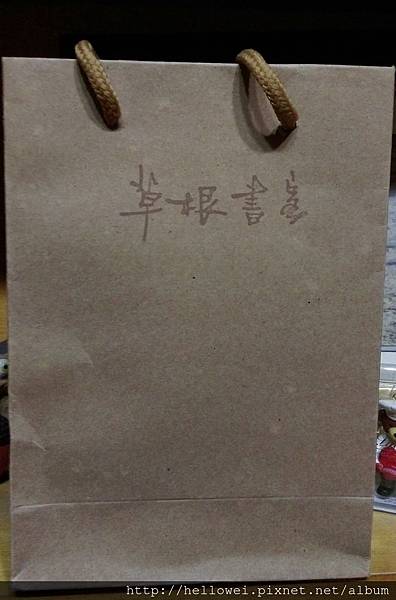 草根書室
http://hellowei.pixnet.net/album